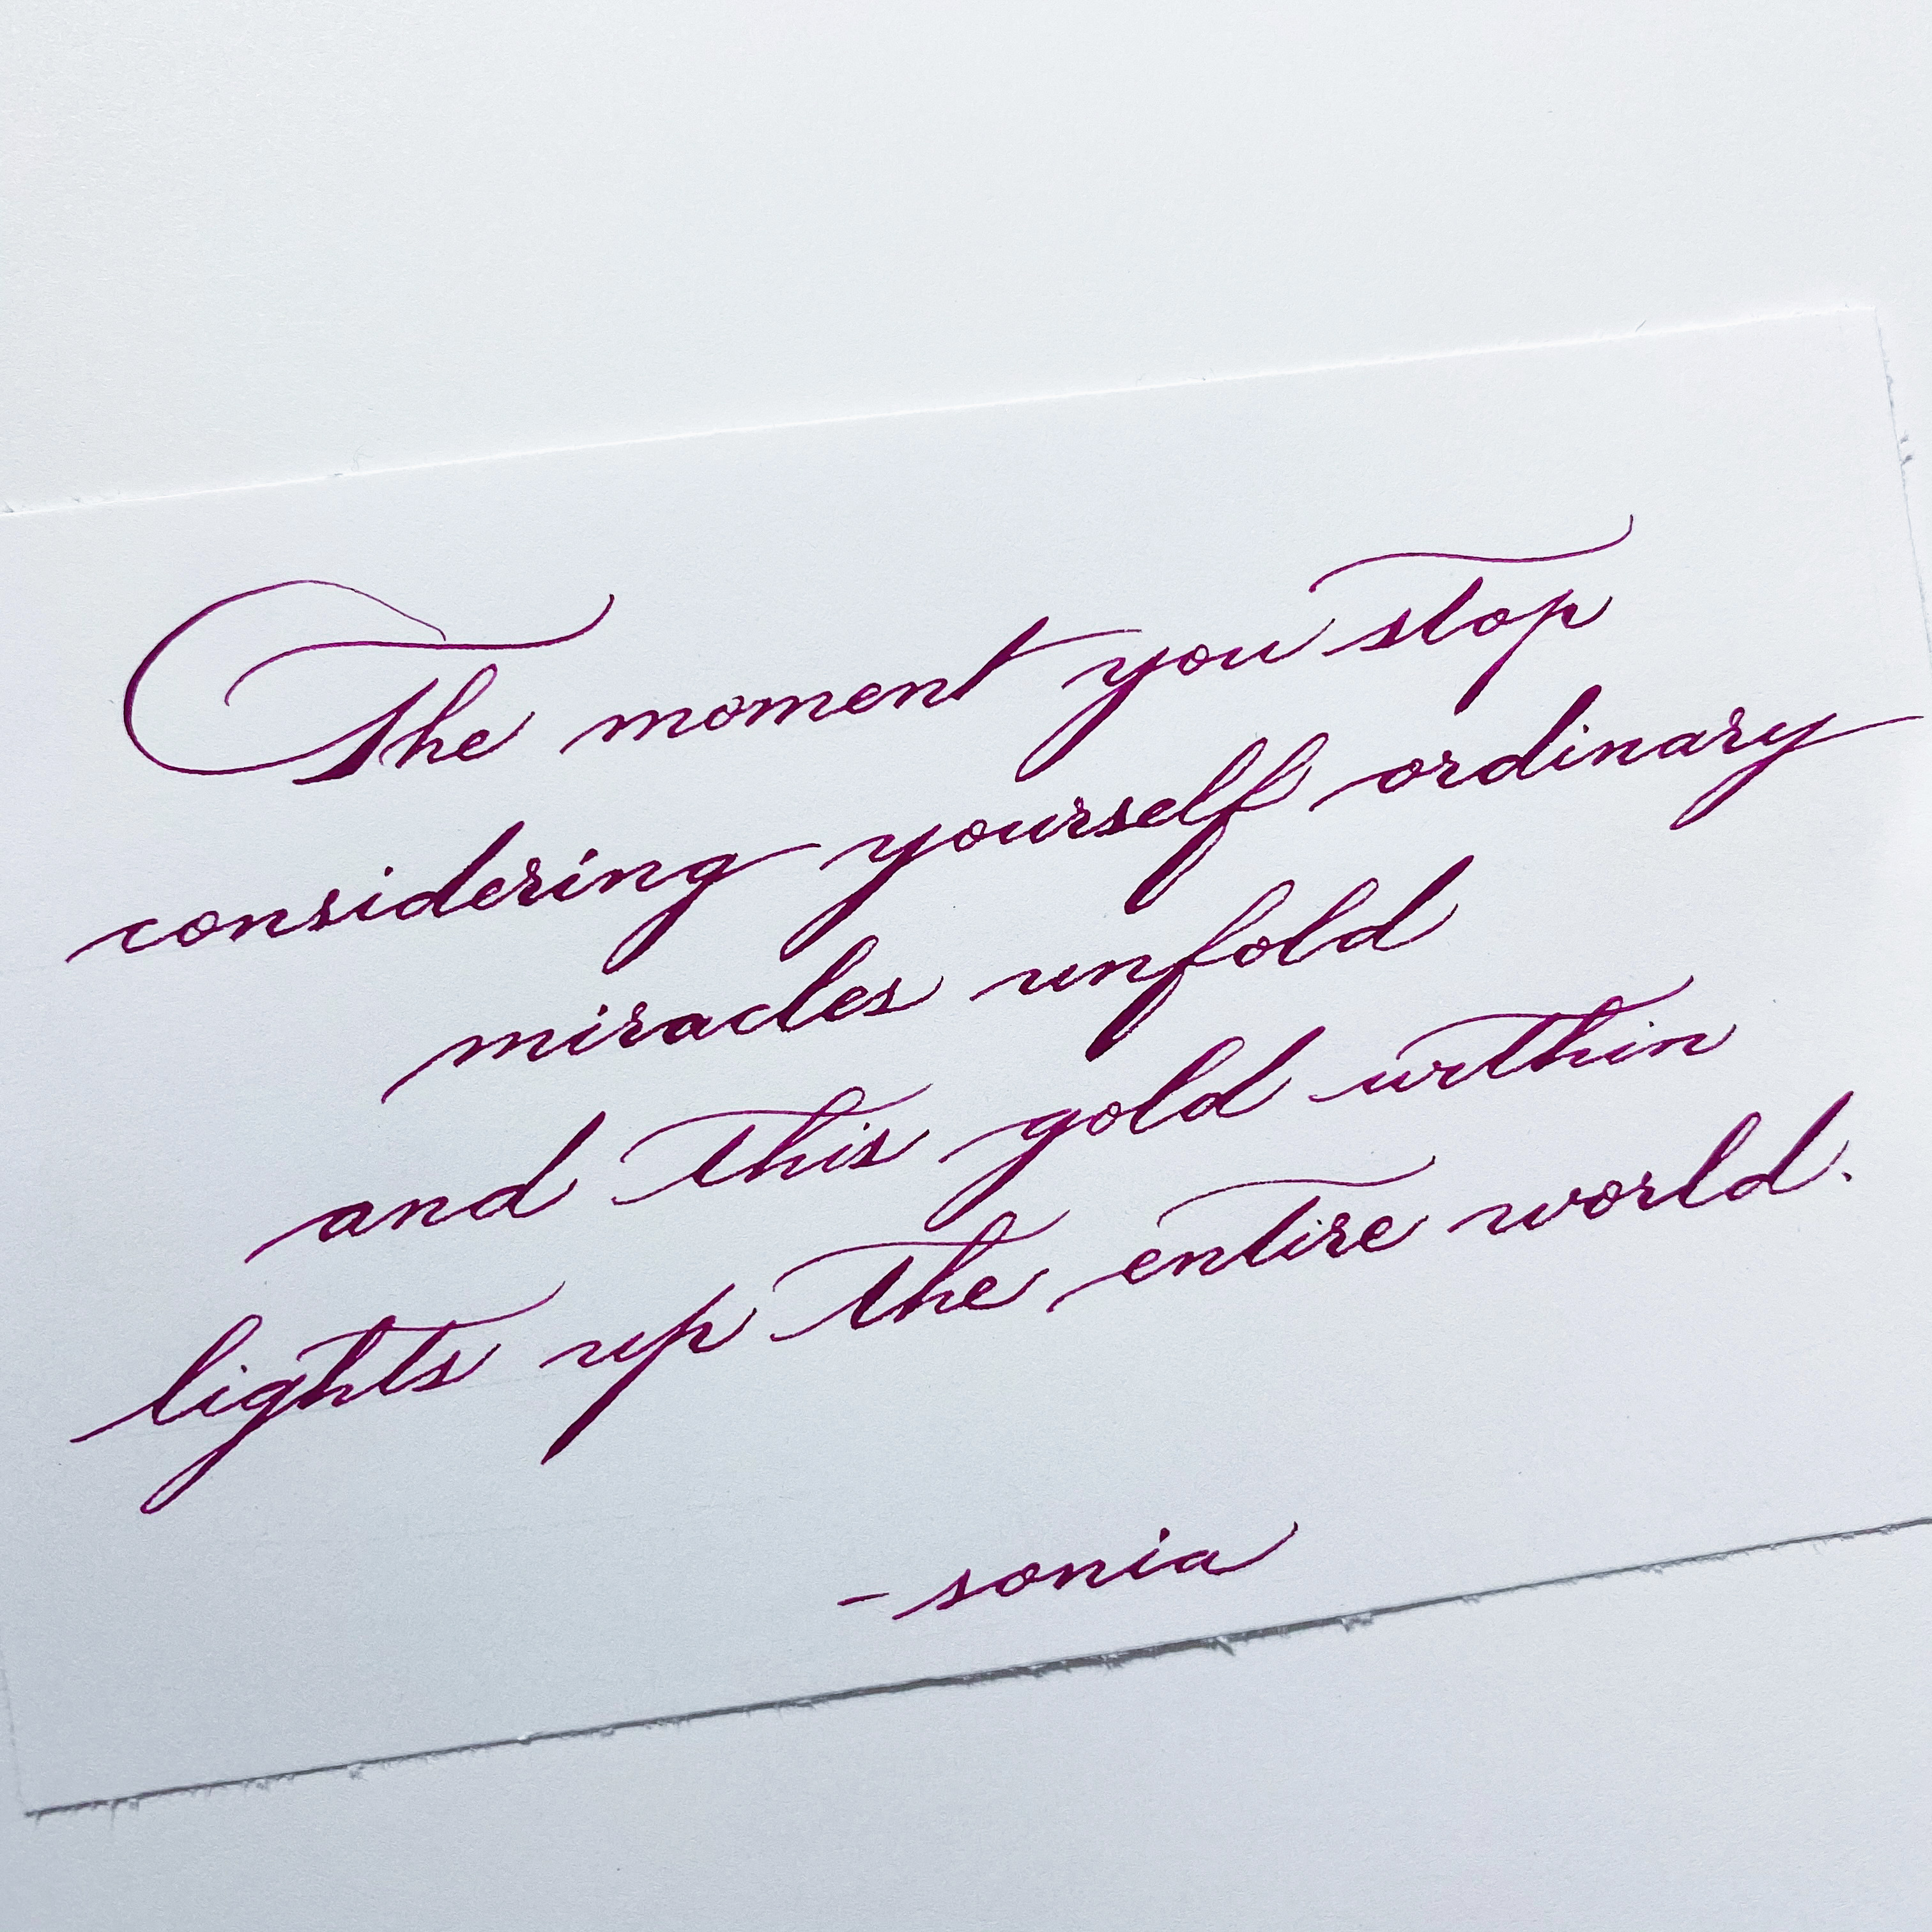 The moment you stop
considering yourself ordinary
miracles unfold
and this gold within
lights up the entire world.
- sonia